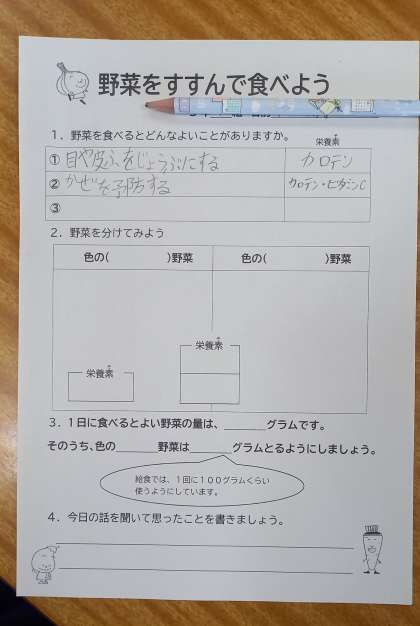 野菜をすすんで食べよう
1．野菜を食べるとどんなよいことがありますか。
栄養素
① 目や皮ふをじょうぶにする カロテン
② かぜを予防する カロテン・ビタミンC
③
2．野菜を分けてみよう
色の( )野菜 色の( )野菜
栄養素
栄養素
3．1日に食べるとよい野菜の量は、______グラムです。
そのうち、色の______野菜は______グラムとるようにしましょう。
給食では、1回に100グラムくらい
使うようにしています。
4．今日の話を聞いて思ったことを書きましょう。